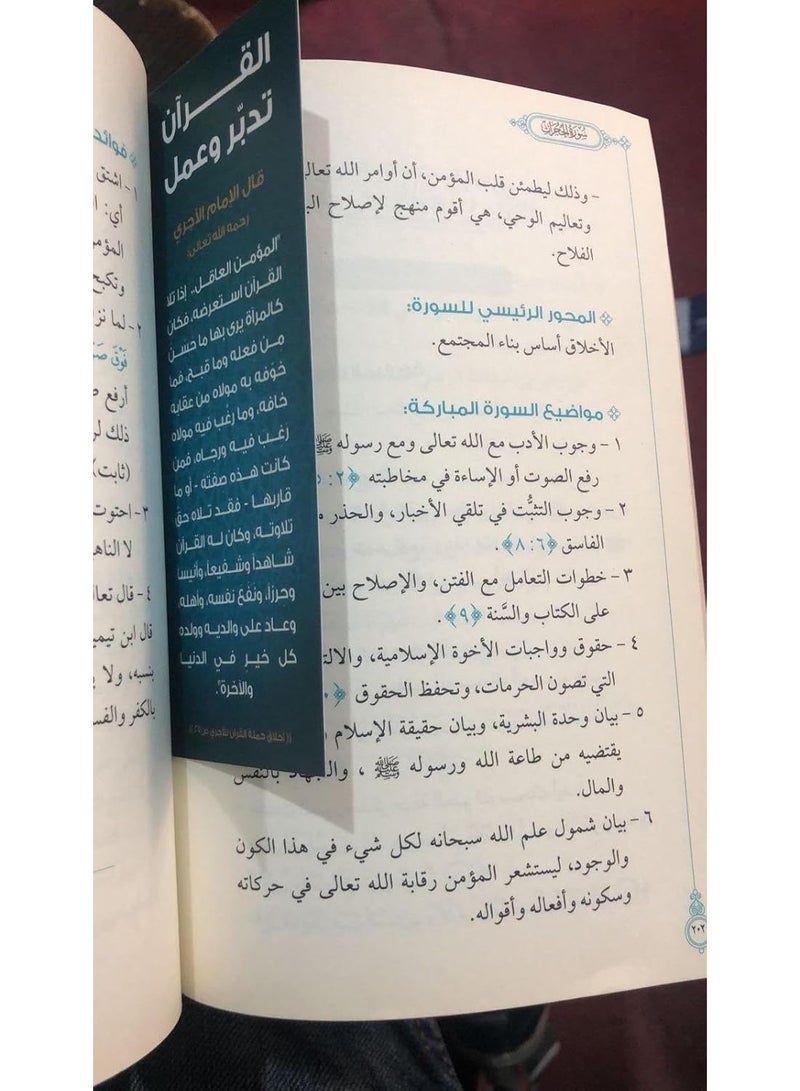 سورة الحجرات
- وذلك ليطمئن قلب المؤمن، أن أوامر الله تعالى
وتعاليم الوحي، هي أقوم منهج لإصلاح
الفلاح.
المحور الرئيسي للسورة:
الأخلاق أساس بناء المجتمع.
مواضيع السورة المباركة:
١- وجوب الأدب مع الله تعالى ومع رسوله ﷺ
رفع الصوت أو الإساءة في مخاطبته ﴿٢:
٢- وجوب التثبُّت في تلقي الأخبار، والحذر
الفاسق ﴿٦: ٨﴾.
٣- خطوات التعامل مع الفتن، والإصلاح بين
على الكتاب والسَّنة ﴿٩﴾.
٤- حقوق وواجبات الأخوة الإسلامية،
التي تصون الحرمات، وتحفظ الحقوق
٥- بيان وحدة البشرية، وبيان حقيقة الإسلام
يقتضيه من طاعة الله ورسوله ﷺ ، والجهاد بالنفس
والمال.
٦- بيان شمول علم الله سبحانه لكل شيء في هذا الكون
والوجود، ليستشعر المؤمن رقابة الله تعالى في حركاته
وسكونه وأفعاله وأقواله.
٢٠٢
القرآن
تدبّر وعمل
قال الإمام الآجري
رحمه الله تعالى:
"المؤمن العاقل.. إذا تلا
القرآن استعرضه، فكان
كالمرآة يرى بها ما حسن
من فعله وما قبح، فما
خوّفه به مولاه من عقابه
خافه، وما رغّب فيه مولاه
رغب فيه ورجاه، فمن
كانت هذه صفته - أو ما
قاربها - فقد تلاه حق
تلاوته، وكان له القرآن
شاهداً وشفيعاً، وأنيساً
وحرزاً، ونفع نفسه، وأهله،
وعاد على والديه وولده
كل خير في الدنيا
والآخرة".
أخلاق حملة القرآن للآجري
فوائد
١- اشتق
أي:
المؤمن
وتكبح
٢- لما نز
فَوْقَ
أرفع
ذلك
(ثابت)
٣- احتوت
لا الناه
٤- قال تعال
قال ابن تيمي
بنسبه، ولا
بالكفر والفس